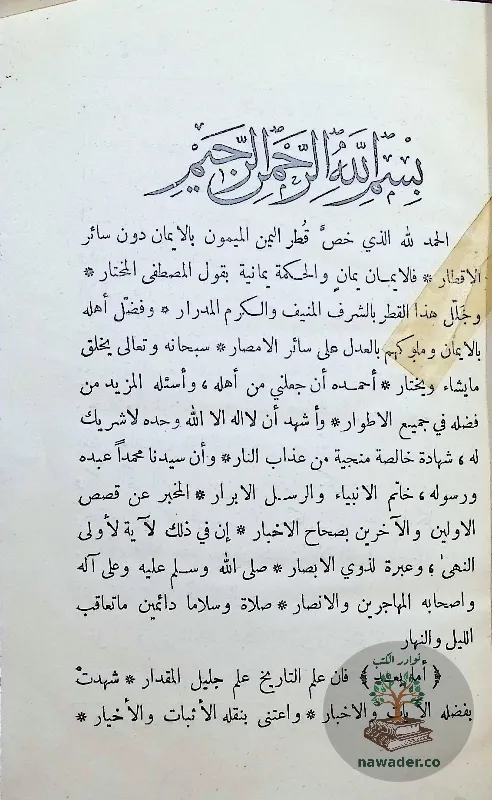 بِسْمِ اللَّهِ الرَّحْمٰنِ الرَّحِيْمِ
الحمد لله الذي خصَّ قُطر اليمن الميمون بالايمان دون سائر
الاقطار * فالايمان يمانٍ والحكمة يمانية بقول المصطفى المختار *
وجُلّل هذا القطر بالشرف المنيف والكرم المدرار * وفضّل أهله
بالايمان وملوكهم بالعدل على سائر الامصار * سبحانه وتعالى يخلق
مايشاء ويختار * أحمده أن جعلني من أهله ، وأسئله المزيد من
فضله في جميع الاطوار * وأشهد أن لااله الا الله وحده لاشريك
له ، شهادة خالصة منجية من عذاب النار * وأن سيدنا محمداً عبده
ورسوله ، خاتم الانبياء والرسل الابرار * المخبر عن قصص
الاولين والآخرين بصحاح الاخبار * إن في ذلك لآية لأولى
النهىٰ ، وعبرة لذوي الابصار * صلى الله وسلم عليه وعلى آله
واصحابه المهاجرين والانصار * صلاة وسلاما دائمين ماتعاقب
الليل والنهار
﴿ أما بعد ﴾ فان علم التاريخ علم جليل المقدار * شهدتْ
بفضله والاخبار * واعتنى بنقله الأثبات والأخيار *
نوادر الكتب
nawader.co